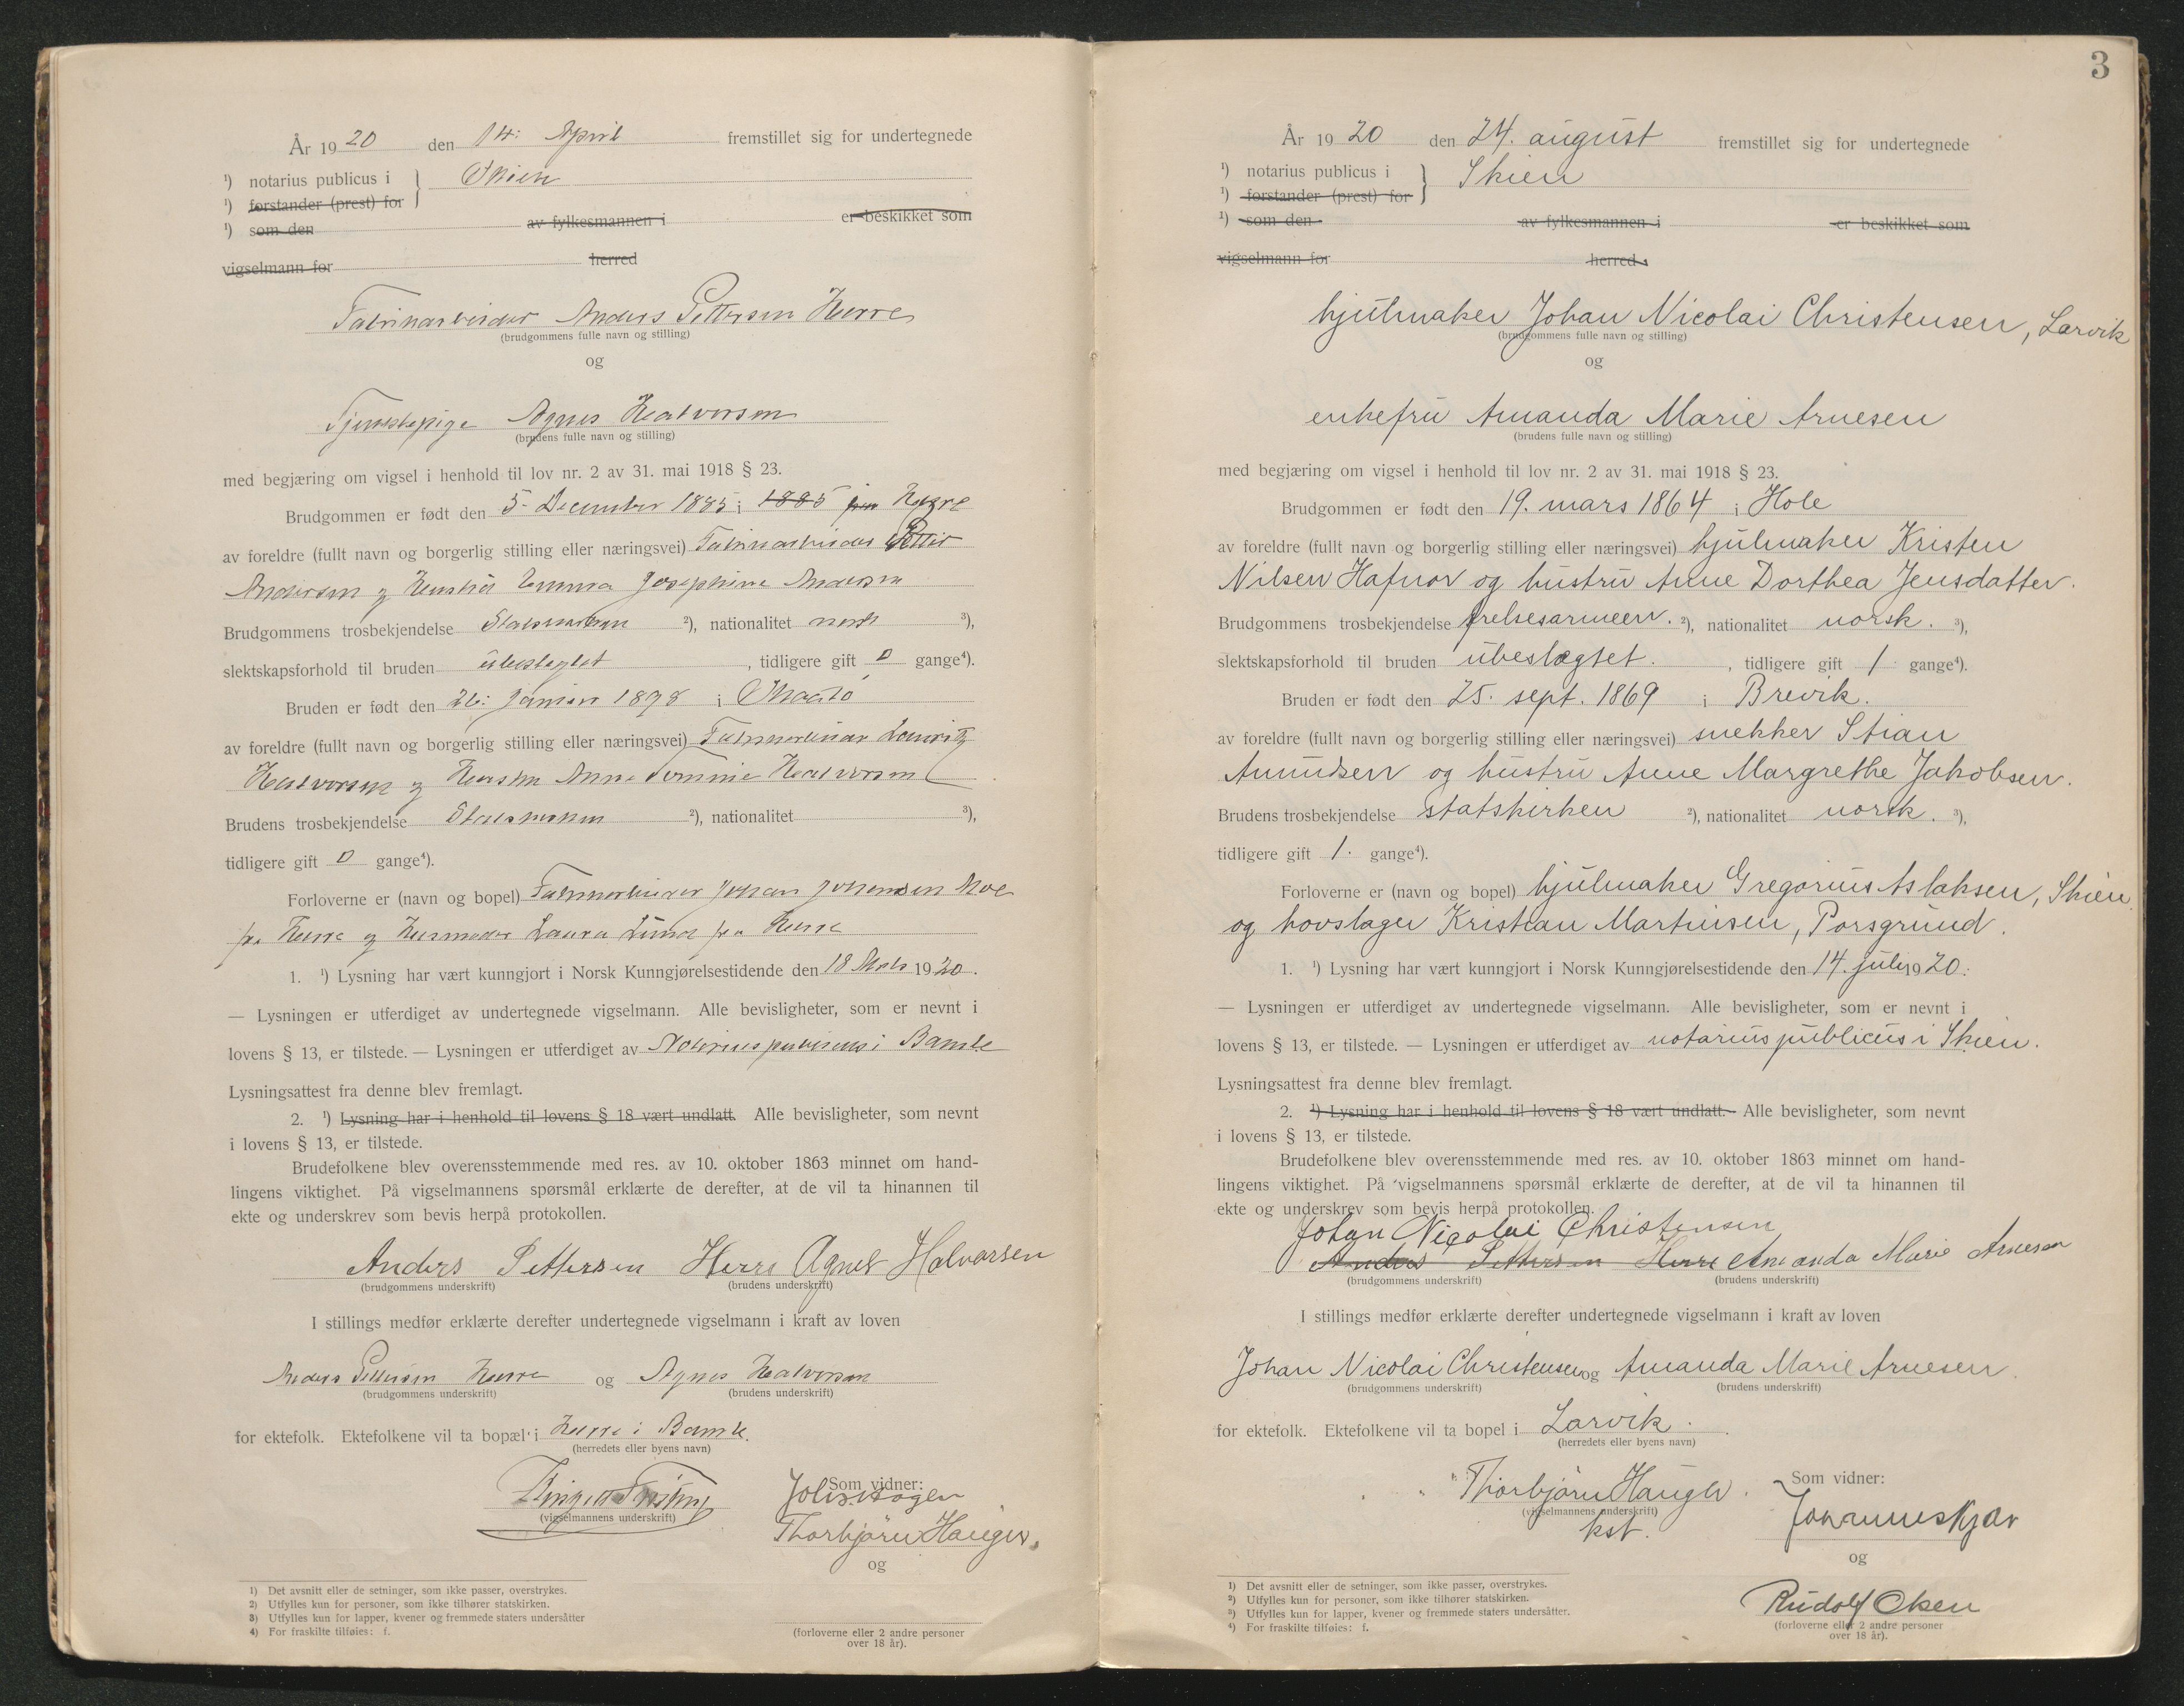 År 1920 den 14. April fremstillet sig for undertegnede
¹) notarius publicus i Skien
¹) forstander (prest) for
¹) som den av fylkesmannen i er beskikket som
vigselmann for herred
Fabrikarbeider Anders Pettersen Herre
(brudgommens fulle navn og stilling)
og
Tjenestepige Agnes Halvorsen
(brudens fulle navn og stilling)
med begjæring om vigsel i henhold til lov nr. 2 av 31. mai 1918 § 23.
Brudgommen er født den 5. December 1885 i 1885 Herre
av foreldre (fullt navn og borgerlig stilling eller næringsvei) Fabrikarbeider Petter
Andersen og Hustru Emma Josephine Andersen
Brudgommens trosbekjendelse Statskirken ²), nationalitet norsk ³),
slektskapsforhold til bruden ubeslegtet, tidligere gift 0 gange⁴).
Bruden er født den 26. Januar 1898 i Skaatø
av foreldre (fullt navn og borgerlig stilling eller næringsvei) Fabrikarbeider Lauritz
Halvorsen og Hustru Anne Halvorsen
Brudens trosbekjendelse Statskirken ²), nationalitet ³),
tidligere gift 0 gange⁴).
Forloverne er (navn og bopel) Fabrikarbeider Johan Johansen Moe
fra Herre og Husmoder Laura Lund fra Herre
1. ¹) Lysning har vært kunngjort i Norsk Kunngjørelsestidende den 18 Mars 1920.
— Lysningen er utferdiget av undertegnede vigselmann. Alle bevisligheter, som er nevnt i
lovens § 13, er tilstede. — Lysningen er utferdiget av Notarius publicus i Bamle
Lysningsattest fra denne blev fremlagt.
2. ¹) Lysning har i henhold til lovens § 18 vært undlatt. Alle bevisligheter, som nevnt
i lovens § 13, er tilstede.
Brudefolkene blev overensstemmende med res. av 10. oktober 1863 minnet om hand-
lingens viktighet. På vigselmannens spørsmål erklærte de derefter, at de vil ta hinannen til
ekte og underskrev som bevis herpå protokollen.
Anders Pettersen Herre Agnes Halvorsen
(brudgommens underskrift) (brudens underskrift)
I stillings medfør erklærte derefter undertegnede vigselmann i kraft av loven
Anders Pettersen Herre og Agnes Halvorsen
(brudgommens underskrift) (brudens underskrift)
for ektefolk. Ektefolkene vil ta bopæl i Herre i Bamle.
(herredets eller byens navn)
Som vidner:
(vigselmannens underskrift)
Thorbjørn Hauger.
og
1) Det avsnitt eller de setninger, som ikke passer, overstrykes.
2) Utfylles kun for personer, som ikke tilhører statskirken.
3) Utfylles kun for lapper, kvener og fremmede staters undersåtter
4) For fraskilte tilføies: f.
(forloverne eller 2 andre personer
over 18 år).
3
År 1920 den 24. august fremstillet sig for undertegnede
¹) notarius publicus i Skien
¹) forstander (prest) for
¹) som den av fylkesmannen i er beskikket som
vigselmann for herred
hjulmaker Johan Nicolai Christensen, Larvik
(brudgommens fulle navn og stilling)
og
enkefru Amanda Marie Arnesen
(brudens fulle navn og stilling)
med begjæring om vigsel i henhold til lov nr. 2 av 31. mai 1918 § 23.
Brudgommen er født den 19. mars 1864 i Hole
av foreldre (fullt navn og borgerlig stilling eller næringsvei) hjulmaker Kristen
Nilsen Hafnor og hustru Anne Dorthea Jensdatter.
Brudgommens trosbekjendelse frelsesarmeen. ²), nationalitet norsk. ³),
slektskapsforhold til bruden ubeslægtet., tidligere gift 1 gange⁴).
Bruden er født den 25. sept. 1869 i Brevik.
av foreldre (fullt navn og borgerlig stilling eller næringsvei) snekker Stian
Amundsen og hustru Anne Margrethe Jakobsen.
Brudens trosbekjendelse statskirken ²), nationalitet norsk. ³),
tidligere gift 1. gange⁴).
Forloverne er (navn og bopel) hjulmaker Gregorius Aslaksen, Skien
og hovslager Kristian Martinsen, Porsgrund.
1. ¹) Lysning har vært kunngjort i Norsk Kunngjørelsestidende den 14. juli 1920.
— Lysningen er utferdiget av undertegnede vigselmann. Alle bevisligheter, som er nevnt i
lovens § 13, er tilstede. — Lysningen er utferdiget av notarius publicus i Skien.
Lysningsattest fra denne blev fremlagt.
2. ¹) Lysning har i henhold til lovens § 18 vært undlatt. Alle bevisligheter, som nevnt
i lovens § 13, er tilstede.
Brudefolkene blev overensstemmende med res. av 10. oktober 1863 minnet om hand-
lingens viktighet. På vigselmannens spørsmål erklærte de derefter, at de vil ta hinannen til
ekte og underskrev som bevis herpå protokollen.
Johan Nicolai Christensen
Anders Pettersen Herre Amanda Marie Arnesen
(brudgommens underskrift) (brudens underskrift)
I stillings medfør erklærte derefter undertegnede vigselmann i kraft av loven
Johan Nicolai Christensen og Amanda Marie Arnesen.
(brudgommens underskrift) (brudens underskrift)
for ektefolk. Ektefolkene vil ta bopel i Larvik.
(herredets eller byens navn)
Thorbjørn Hauger. Som vidner:
(vigselmannens underskrift)
kst. Johannes Kjær
og
Rudolf Olsen
1) Det avsnitt eller de setninger, som ikke passer, overstrykes.
²) Utfylles kun for personer, som ikke tilhører statskirken.
³) Utfylles kun for lapper, kvener og fremmede staters undersåtter.
⁴) For fraskilte tilføies: f.
(forloverne eller 2 andre personer
over 18 år).